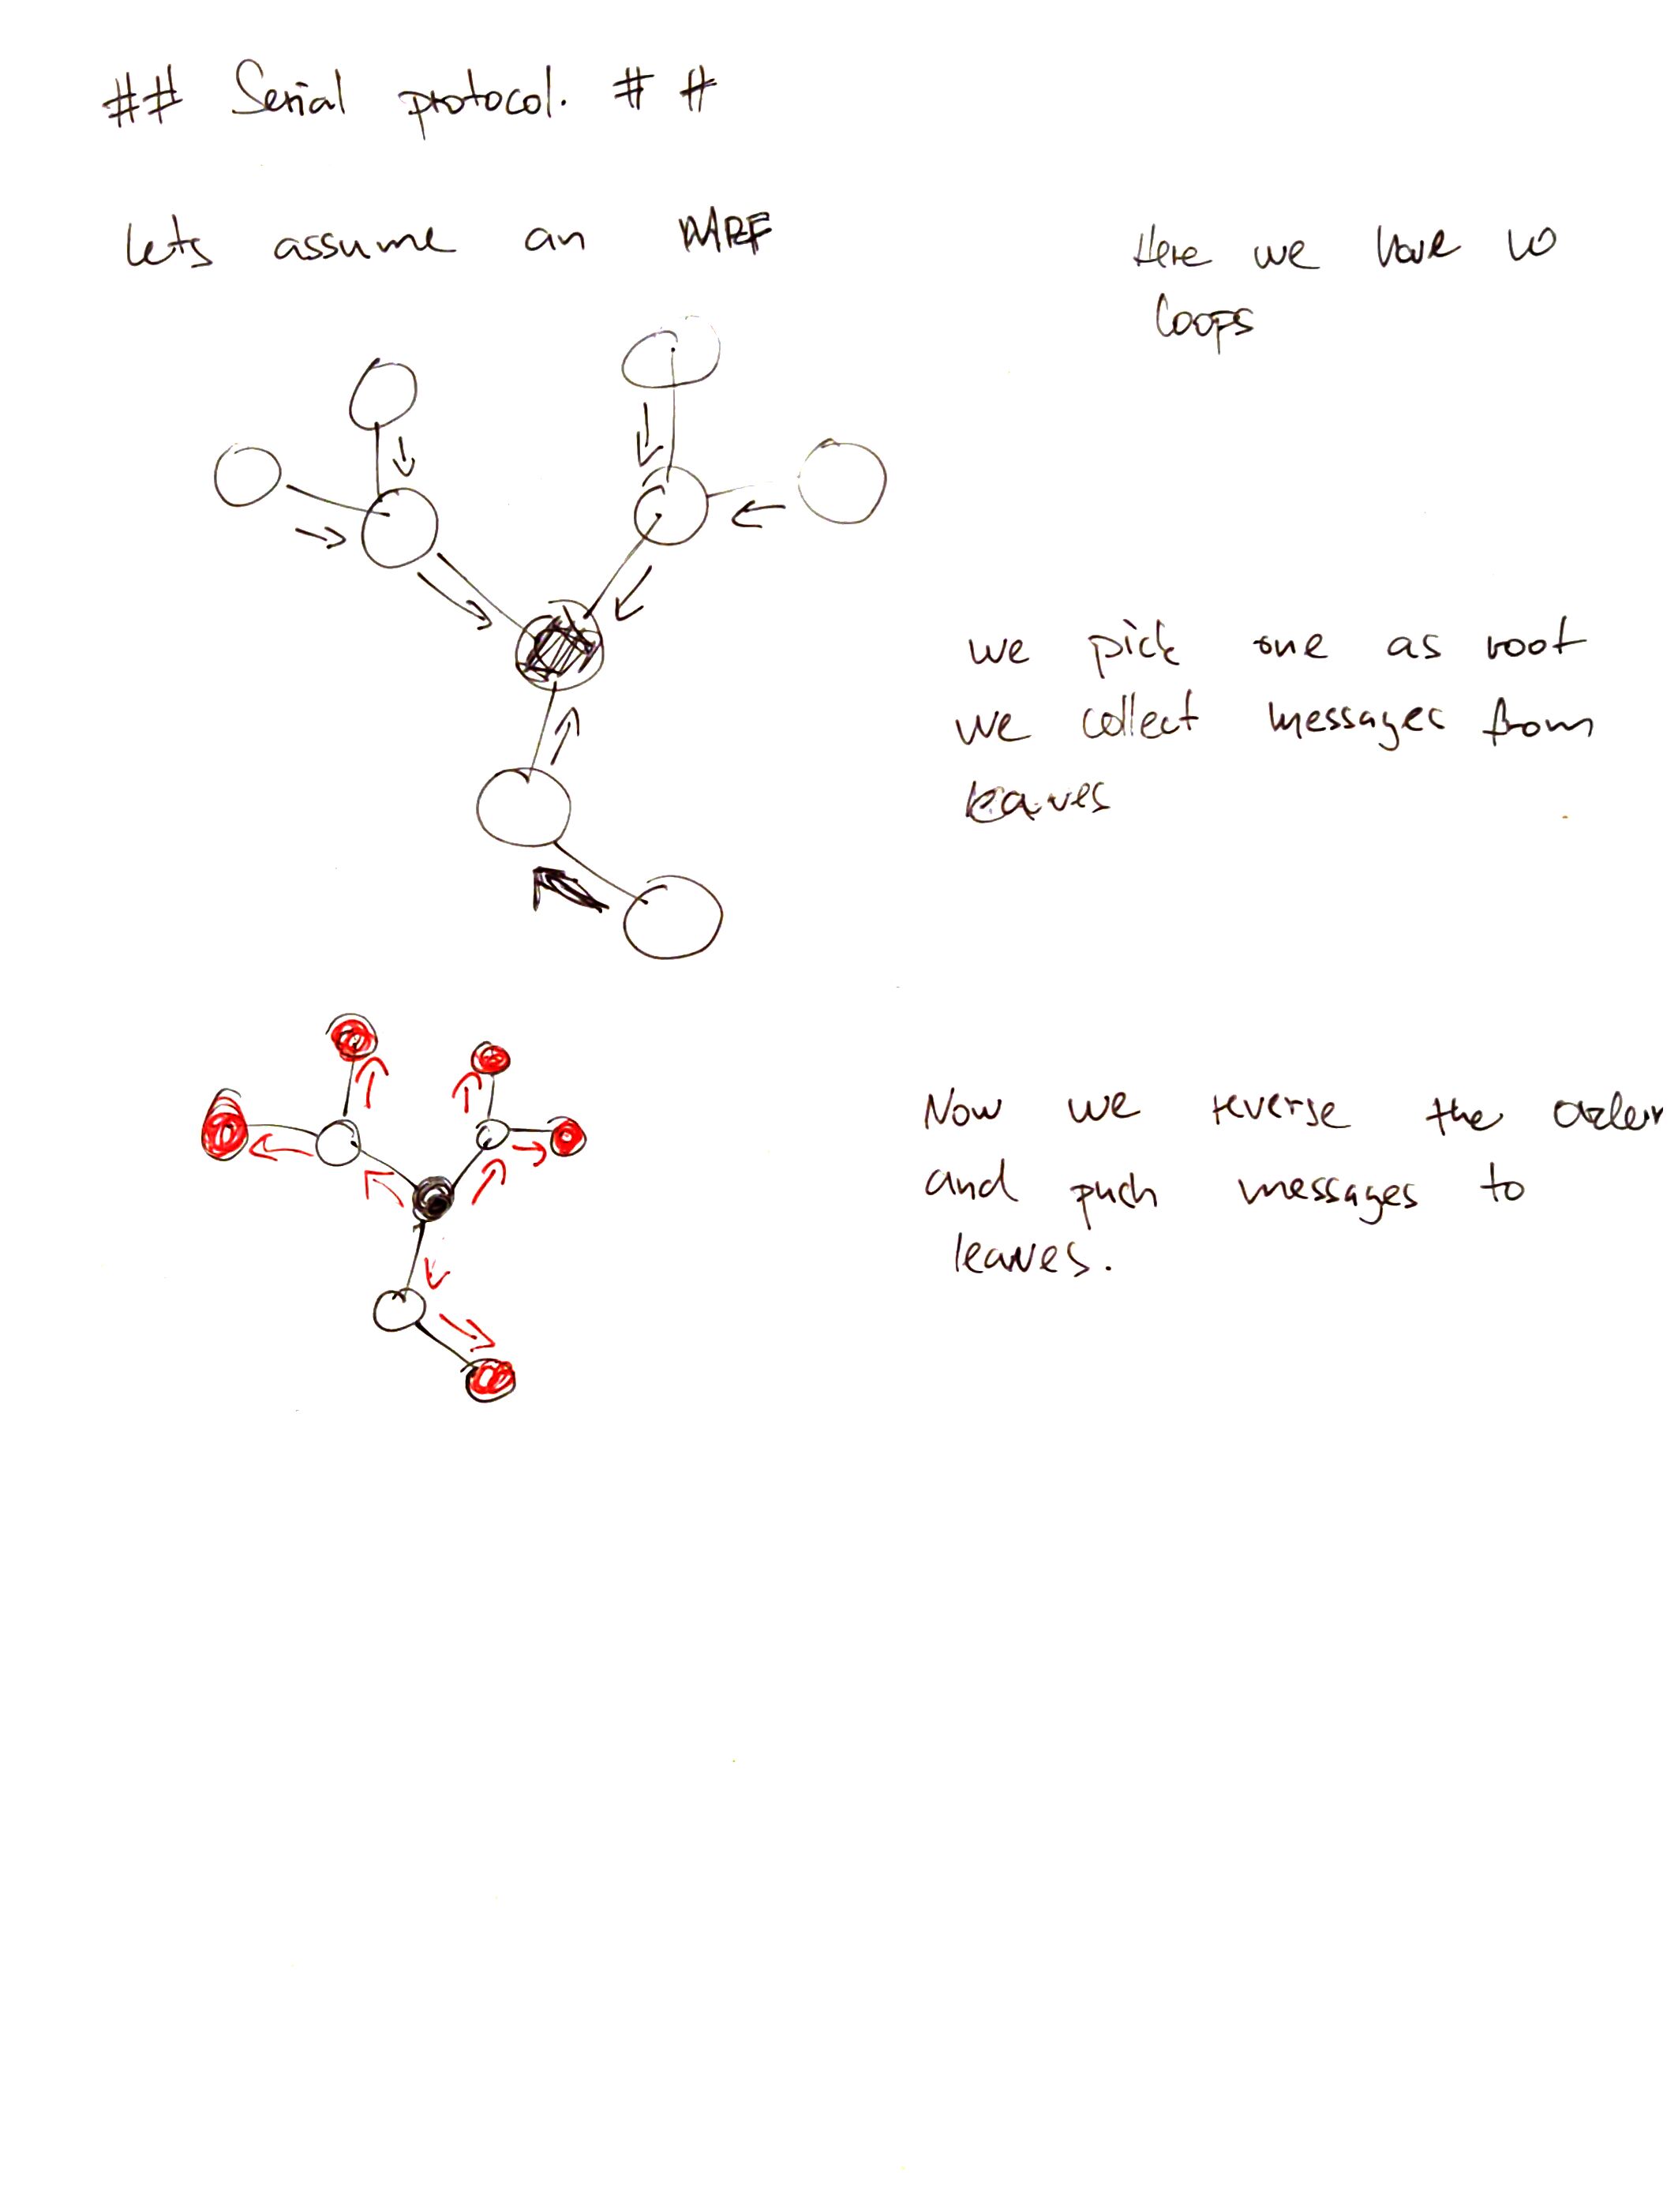 ## Serial protocol. ##
lets assume an MRF
Here we have no
loops
we pick one as root
we collect messages from
leaves
Now we reverse the order
and push messages to
leaves.